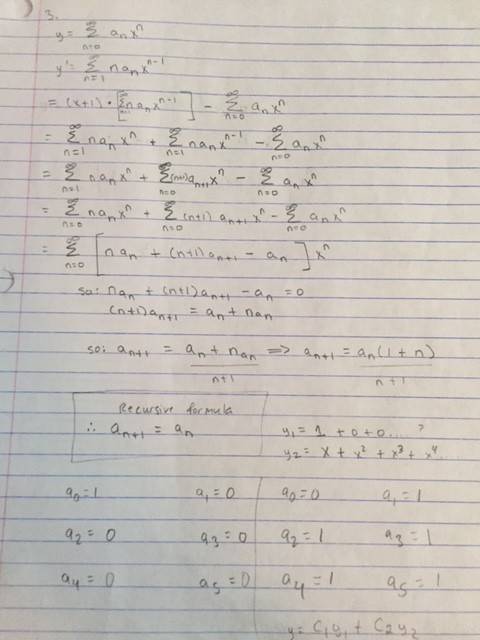 3.
y = ∞Σn=0 aₙxⁿ
y' = ∞Σn=1 naₙxⁿ⁻¹
= (x+1)·[∞Σn=1 naₙxⁿ⁻¹] - ∞Σn=0 aₙxⁿ
= ∞Σn=1 naₙxⁿ + ∞Σn=1 naₙxⁿ⁻¹ - ∞Σn=0 aₙxⁿ
= ∞Σn=1 naₙxⁿ + ∞Σn=0 (n+1)aₙ₊₁xⁿ - ∞Σn=0 aₙxⁿ
= ∞Σn=0 naₙxⁿ + ∞Σn=0 (n+1)aₙ₊₁xⁿ - ∞Σn=0 aₙxⁿ
= ∞Σn=0 [naₙ + (n+1)aₙ₊₁ - aₙ]xⁿ
so: naₙ + (n+1)aₙ₊₁ - aₙ = 0
(n+1)aₙ₊₁ = aₙ + naₙ
so: aₙ₊₁ = aₙ + naₙ / n+1 ⟹ aₙ₊₁ = aₙ(1+n) / n+1
Recursive formula
∴ aₙ₊₁ = aₙ
y₁ = 1 + 0 + 0 .... ?
y₂ = x + x² + x³ + x⁴...
a₀=1 a₁=0 a₀=0 a₁=1
a₂=0 a₃=0 a₂=1 a₃=1
a₄=0 a₅=0 a₄=1 a₅=1
y = C₁y₁ + C₂y₂